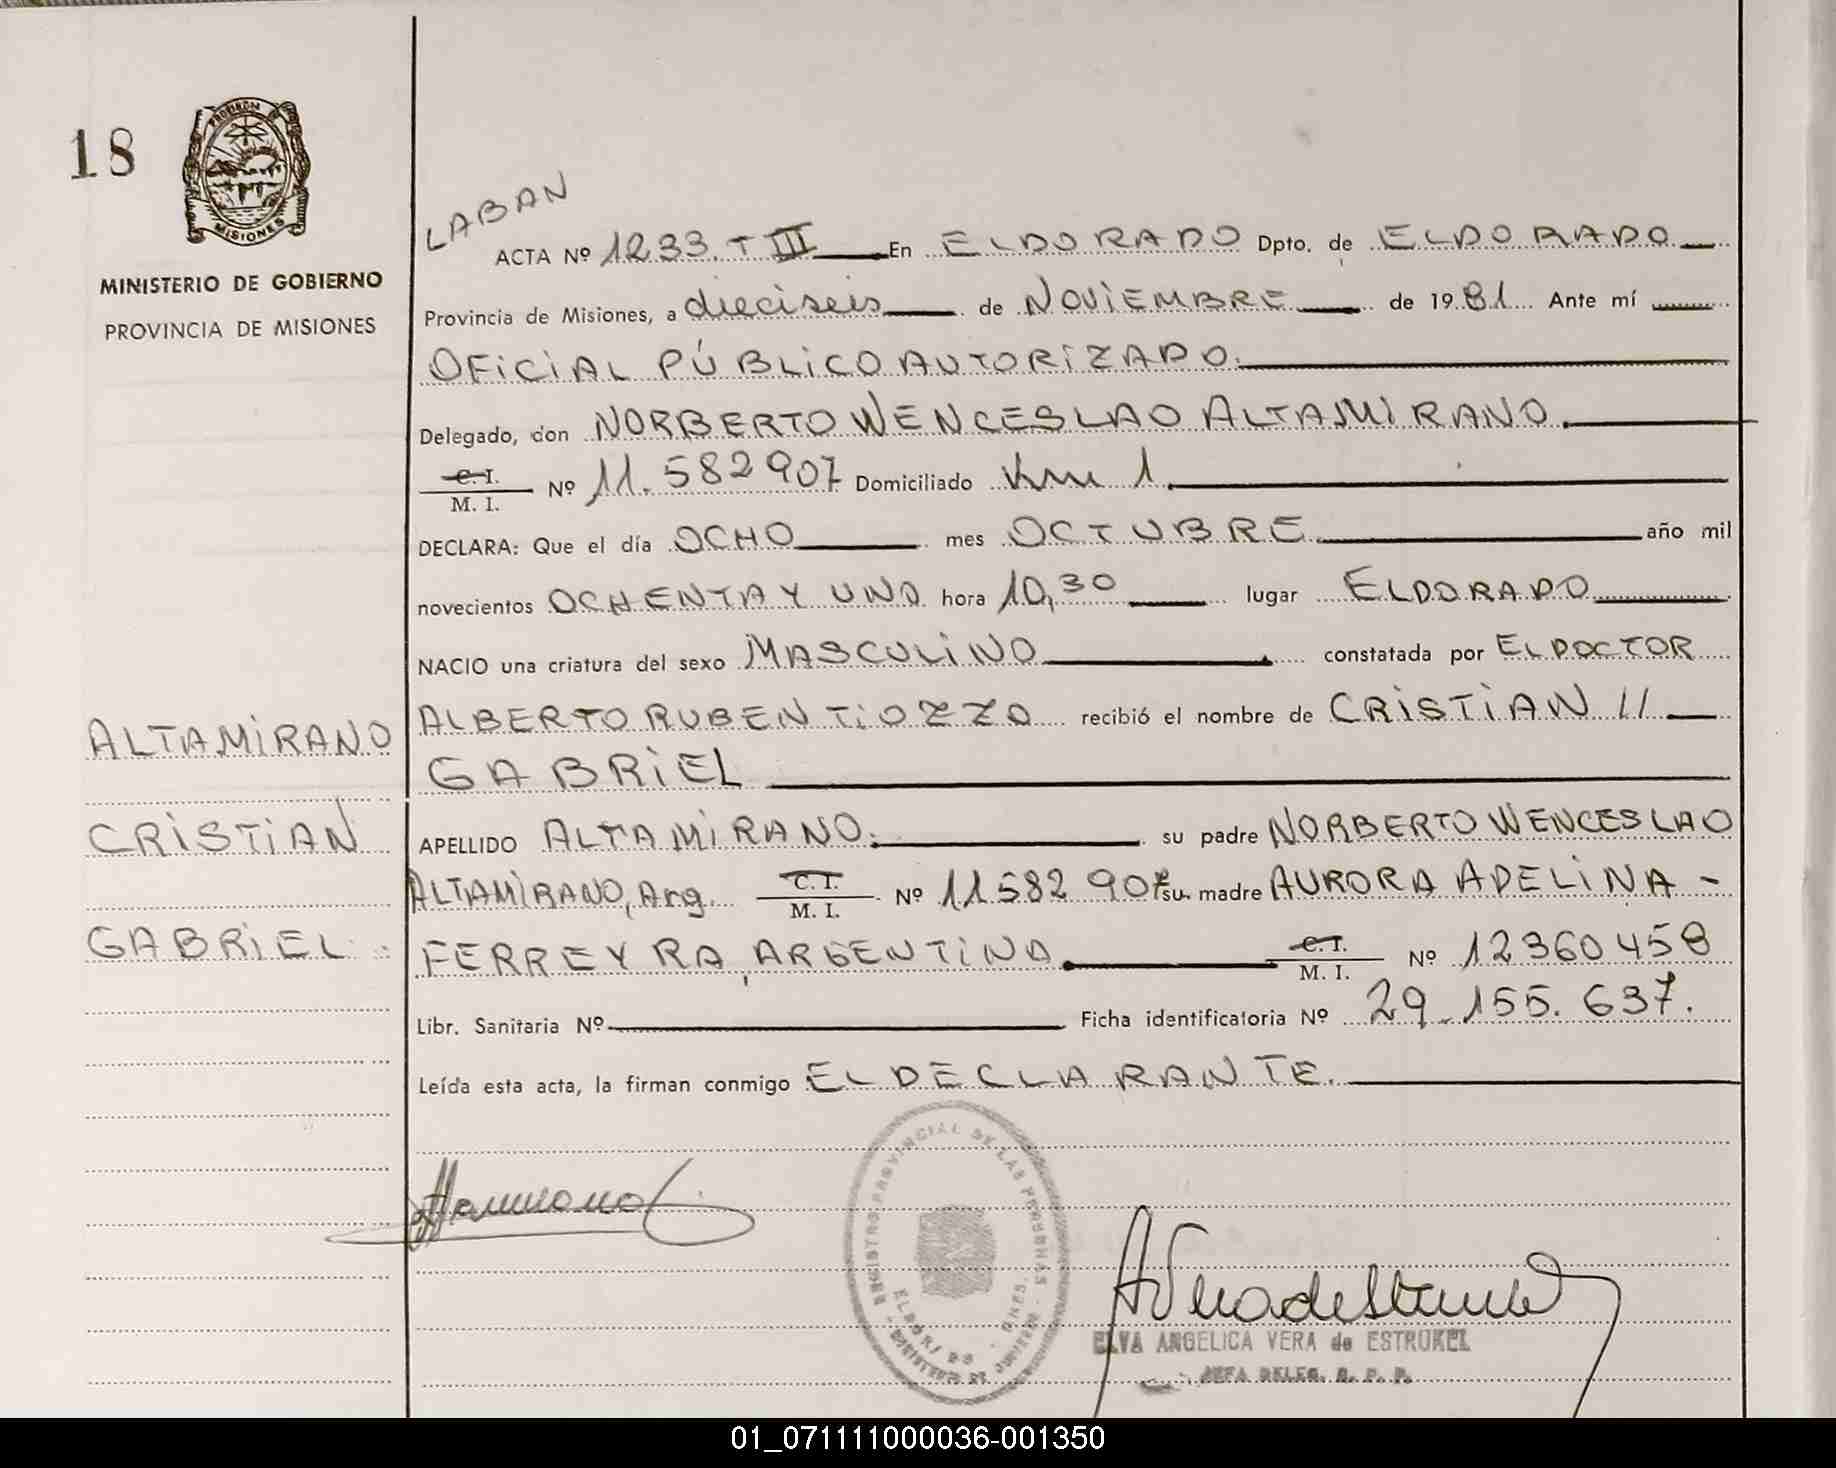 18
PROVISION
MISIONES
MINISTERIO DE GOBIERNO
PROVINCIA DE MISIONES
ALTAMIRANO
CRISTIAN
GABRIEL
LABAN
ACTA Nº 1233. T III En ELDORADO Dpto. de ELDORADO
Provincia de Misiones, a dieciseis de NOVIEMBRE de 19 81 Ante mí
OFICIAL PÚBLICO AUTORIZADO.
Delegado, don NORBERTO WENCESLAO ALTAMIRANO.
C.I.
M. I. Nº 11.582907 Domiciliado km 1
DECLARA: Que el día OCHO mes OCTUBRE año mil
novecientos OCHENTA Y UNO hora 10,30 lugar ELDORADO
NACIO una criatura del sexo MASCULINO constatada por EL DOCTOR
ALBERTO RUBEN TIOZZO recibió el nombre de CRISTIAN //
GABRIEL
APELLIDO ALTAMIRANO. su padre NORBERTO WENCESLAO
ALTAMIRANO, Arg. C.I.
M. I. Nº 11582907 su madre AURORA ADELINA -
FERREYRA, ARGENTINA C.I.
M. I. Nº 12360458
Libr. Sanitaria Nº Ficha identificatoria Nº 29.155.637.
Leída esta acta, la firman conmigo EL DECLARANTE.
REGISTRO PROVINCIAL DE LAS PERSONAS
ELDORADO
ELVA ANGELICA VERA de ESTRUKEL
JEFA DELEG. R. P. P.
01_071111000036-001350